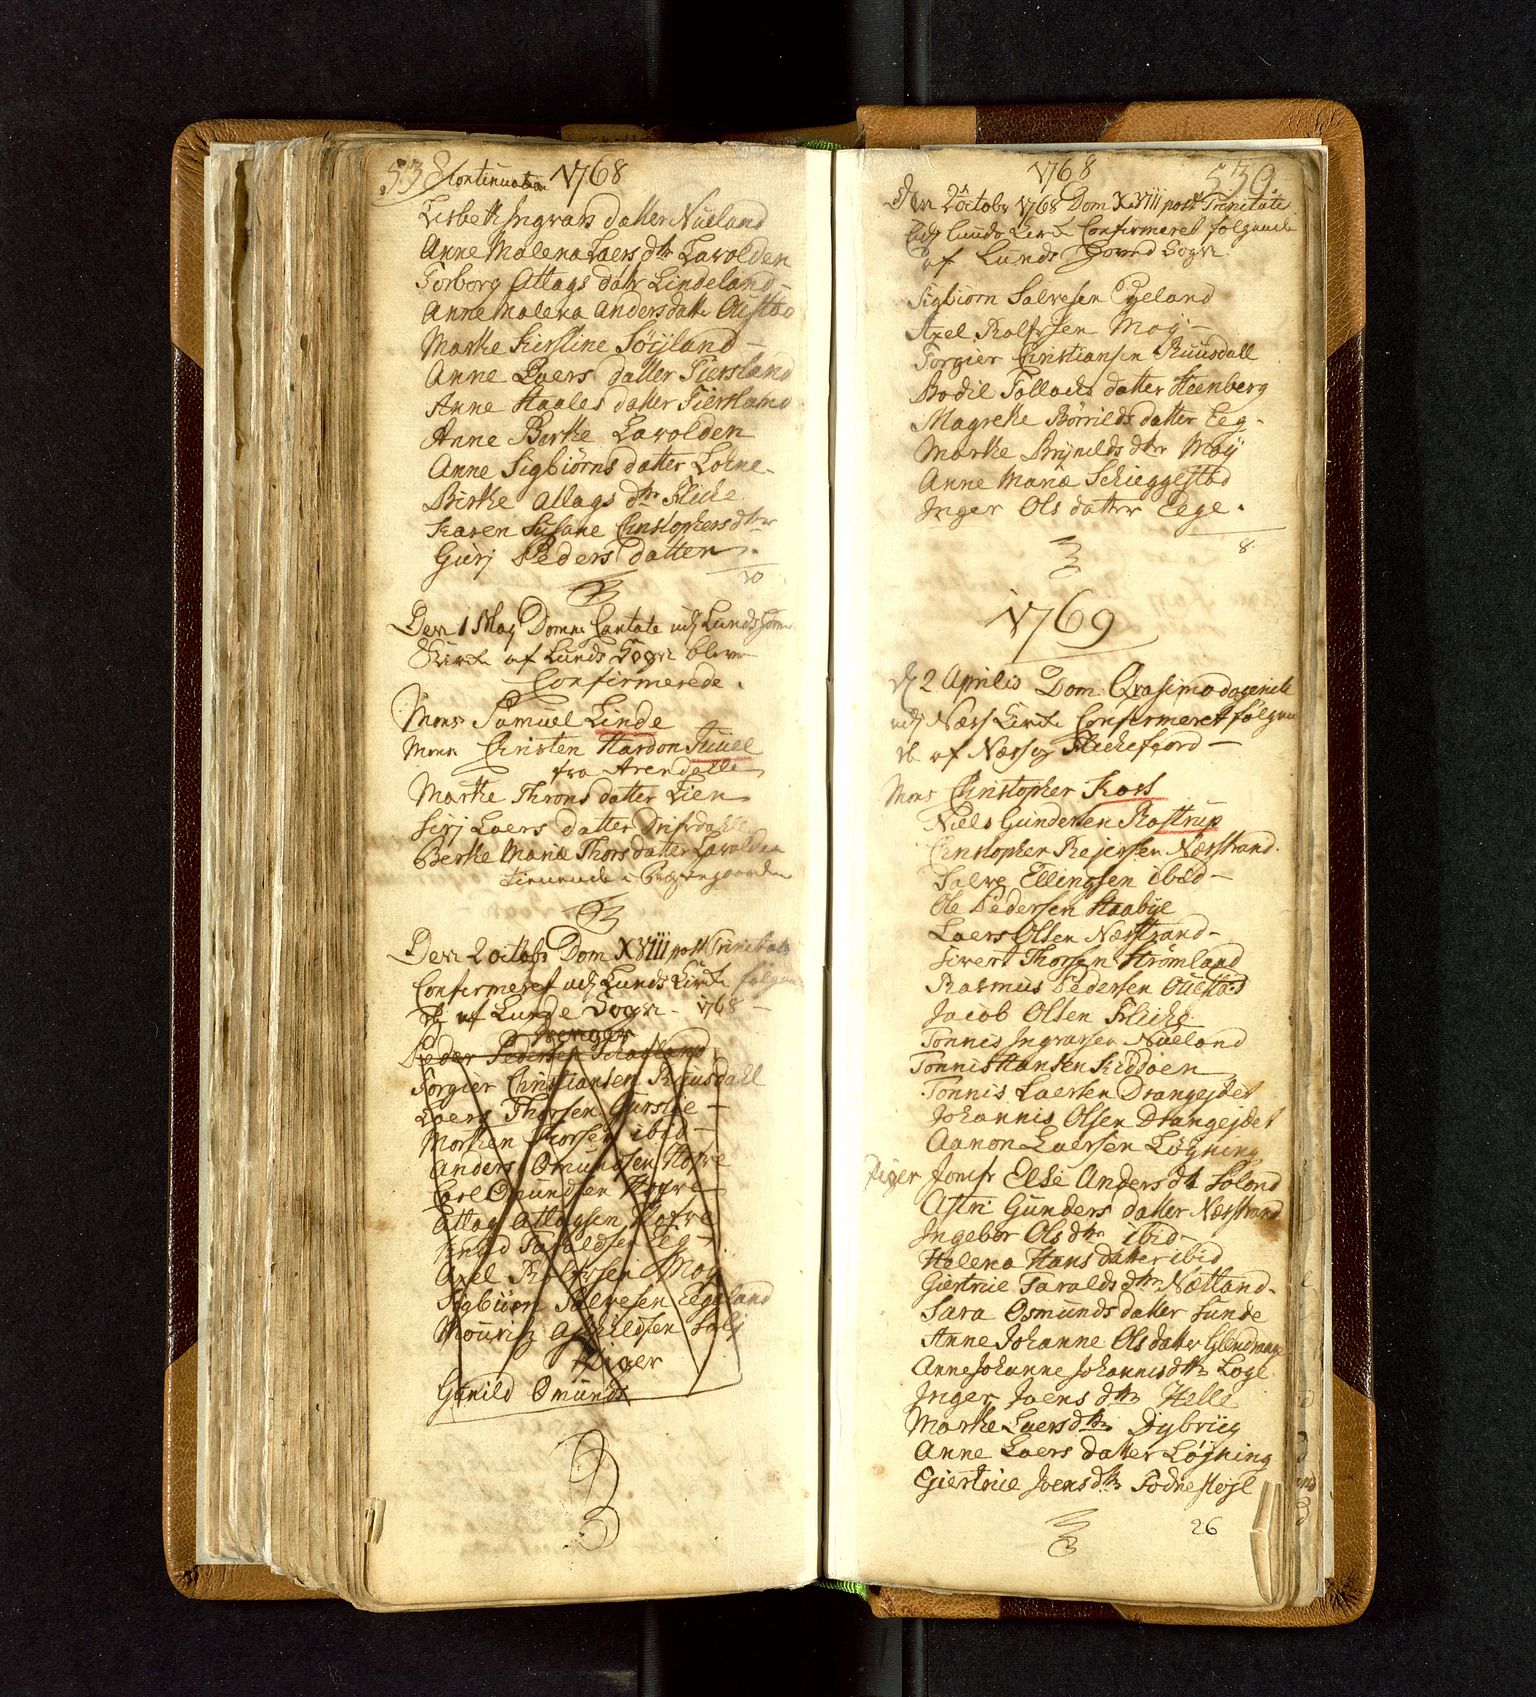 538 Continuation 1768
Lisbeth Ingvals datter Nueland
Anne Malena Laers dtr Lavolden
Torborg Attags datr Lindeland
Anne Malena Anders datte
Marthe Kirstine Söyland
Anne Laers datter Fiersland
Anne Haales datter Fiersland
Anne Berthe Lavolden
Anne Sigbiörns datter Lohne
Berthe Allags dtr Fliche
Karen Susane Christophers dtter
Guri Peders datter
20
Den 1 May Domn Cantate udj Lunds
Kirche af Lunds Sogn bleve
Confirmerede
Monsr Samuel Linde
Monsr Christen Hardon Juuel
fra Arendalle
Marthe Throns datter Lien
Sirj Laers datter
Berthe Maria Thors datter Lavolden
tienende i Præstegaarden
Den 2 octobr Dom XVIII post Trinitatis
Confirmeret udj Lunds Kirche følgen
de af Lunde Sogn 1768
Drenger
Peder Pedersen
Torgier Christiansen Ruusdall
Laers Thorsen Gurstøe
Morthen Thorsen ibid
Anders Omundsen Hofve
Carl Omundsen Hofve
Attag Attagsen Hofve
Taraldsen Eeg
Axel Rolfsen Moy
Sigbiörn Salvesen Eegeland
Mouritz
Piger
Gunild Omunds
1768
539
Den 2 octobr 1768 Dom XVIII post Trinitatis
udj Lunds Kirche Confirmeret følgende
af Lunds Sogn
Sigbiörn Salvesen Egeland
Axel Rolfsen Moy
Torgier Christiansen Ruusdall
Bodil Tollachs datter Steenberg
Magrethe Börrilds datter Eeg
Marthe Brynilds dtr Moy
Anne Maria Schieggestad
Inger Ols datter Eege
8
1769
d 2 Aprilis Dom Qvasimodogeniti
udj Næss Kirche Confirmeret følgen
de af Næss og Flichefiord
Mons Christopher Koss
Niels Gundersen Rostrup
Christopher Reiersen Næsstrand
Salve Ellingsen ibid
Ole Pedersen Haabye
Laers Olsen Næsstrand
Sivert Thorsen Strömland
Rasmus Pedersen
Jacob Olsen Fliche
Tönnis Ingvarsen Nueland
Tönnis Hansen Kiddöen
Tönnis Laersen Drangejdet
Johannis Olsen Drangejdet
Aanon Laersen Løgning
Piger Jomfr Else Anders dt
Astri Gunders datter Næsstrand
Ingebor Ols dtr ibid
Helena Hans datter ibid
Giertrue Taralds dtr Nætland
Sara Osmunds datter Sunde
Anne Johanne Ols datter Glendrange
Anne Johanne Johannis dtr Loge
Inger Joens dtr Helle
Marthe Laers dtr Dybvig
Anne Laers datter Løgning
Giertrue Joens dtr
26